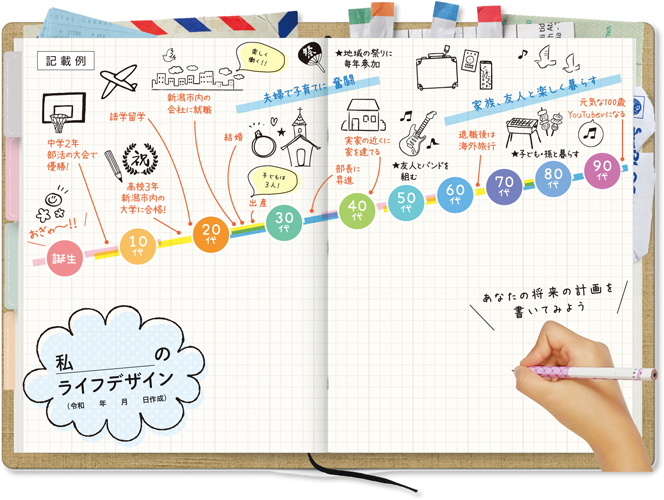 記載例
楽しく
働く!!
★地域の祭りに
毎年参加
夫婦で子育てに奮闘
家族、友人と楽しく暮らす
新潟市内の
会社に就職
語学留学
結婚
中学2年
部活の大会で
優勝!
祝
高校3年
新潟市内の
大学に合格!
子どもは
3人!
出産
部長に
昇進
実家の近くに
家を建てる
★友人とバンドを
組む
退職後は
海外旅行
★子ども・孫と暮らす
元気な100歳
YouTuberになる
おぎゃ〜!!
誕生
10代
20代
30代
40代
50代
60代
70代
80代
90代
あなたの将来の計画を
書いてみよう
私 の
ライフデザイン
(令和 年 月 日作成)